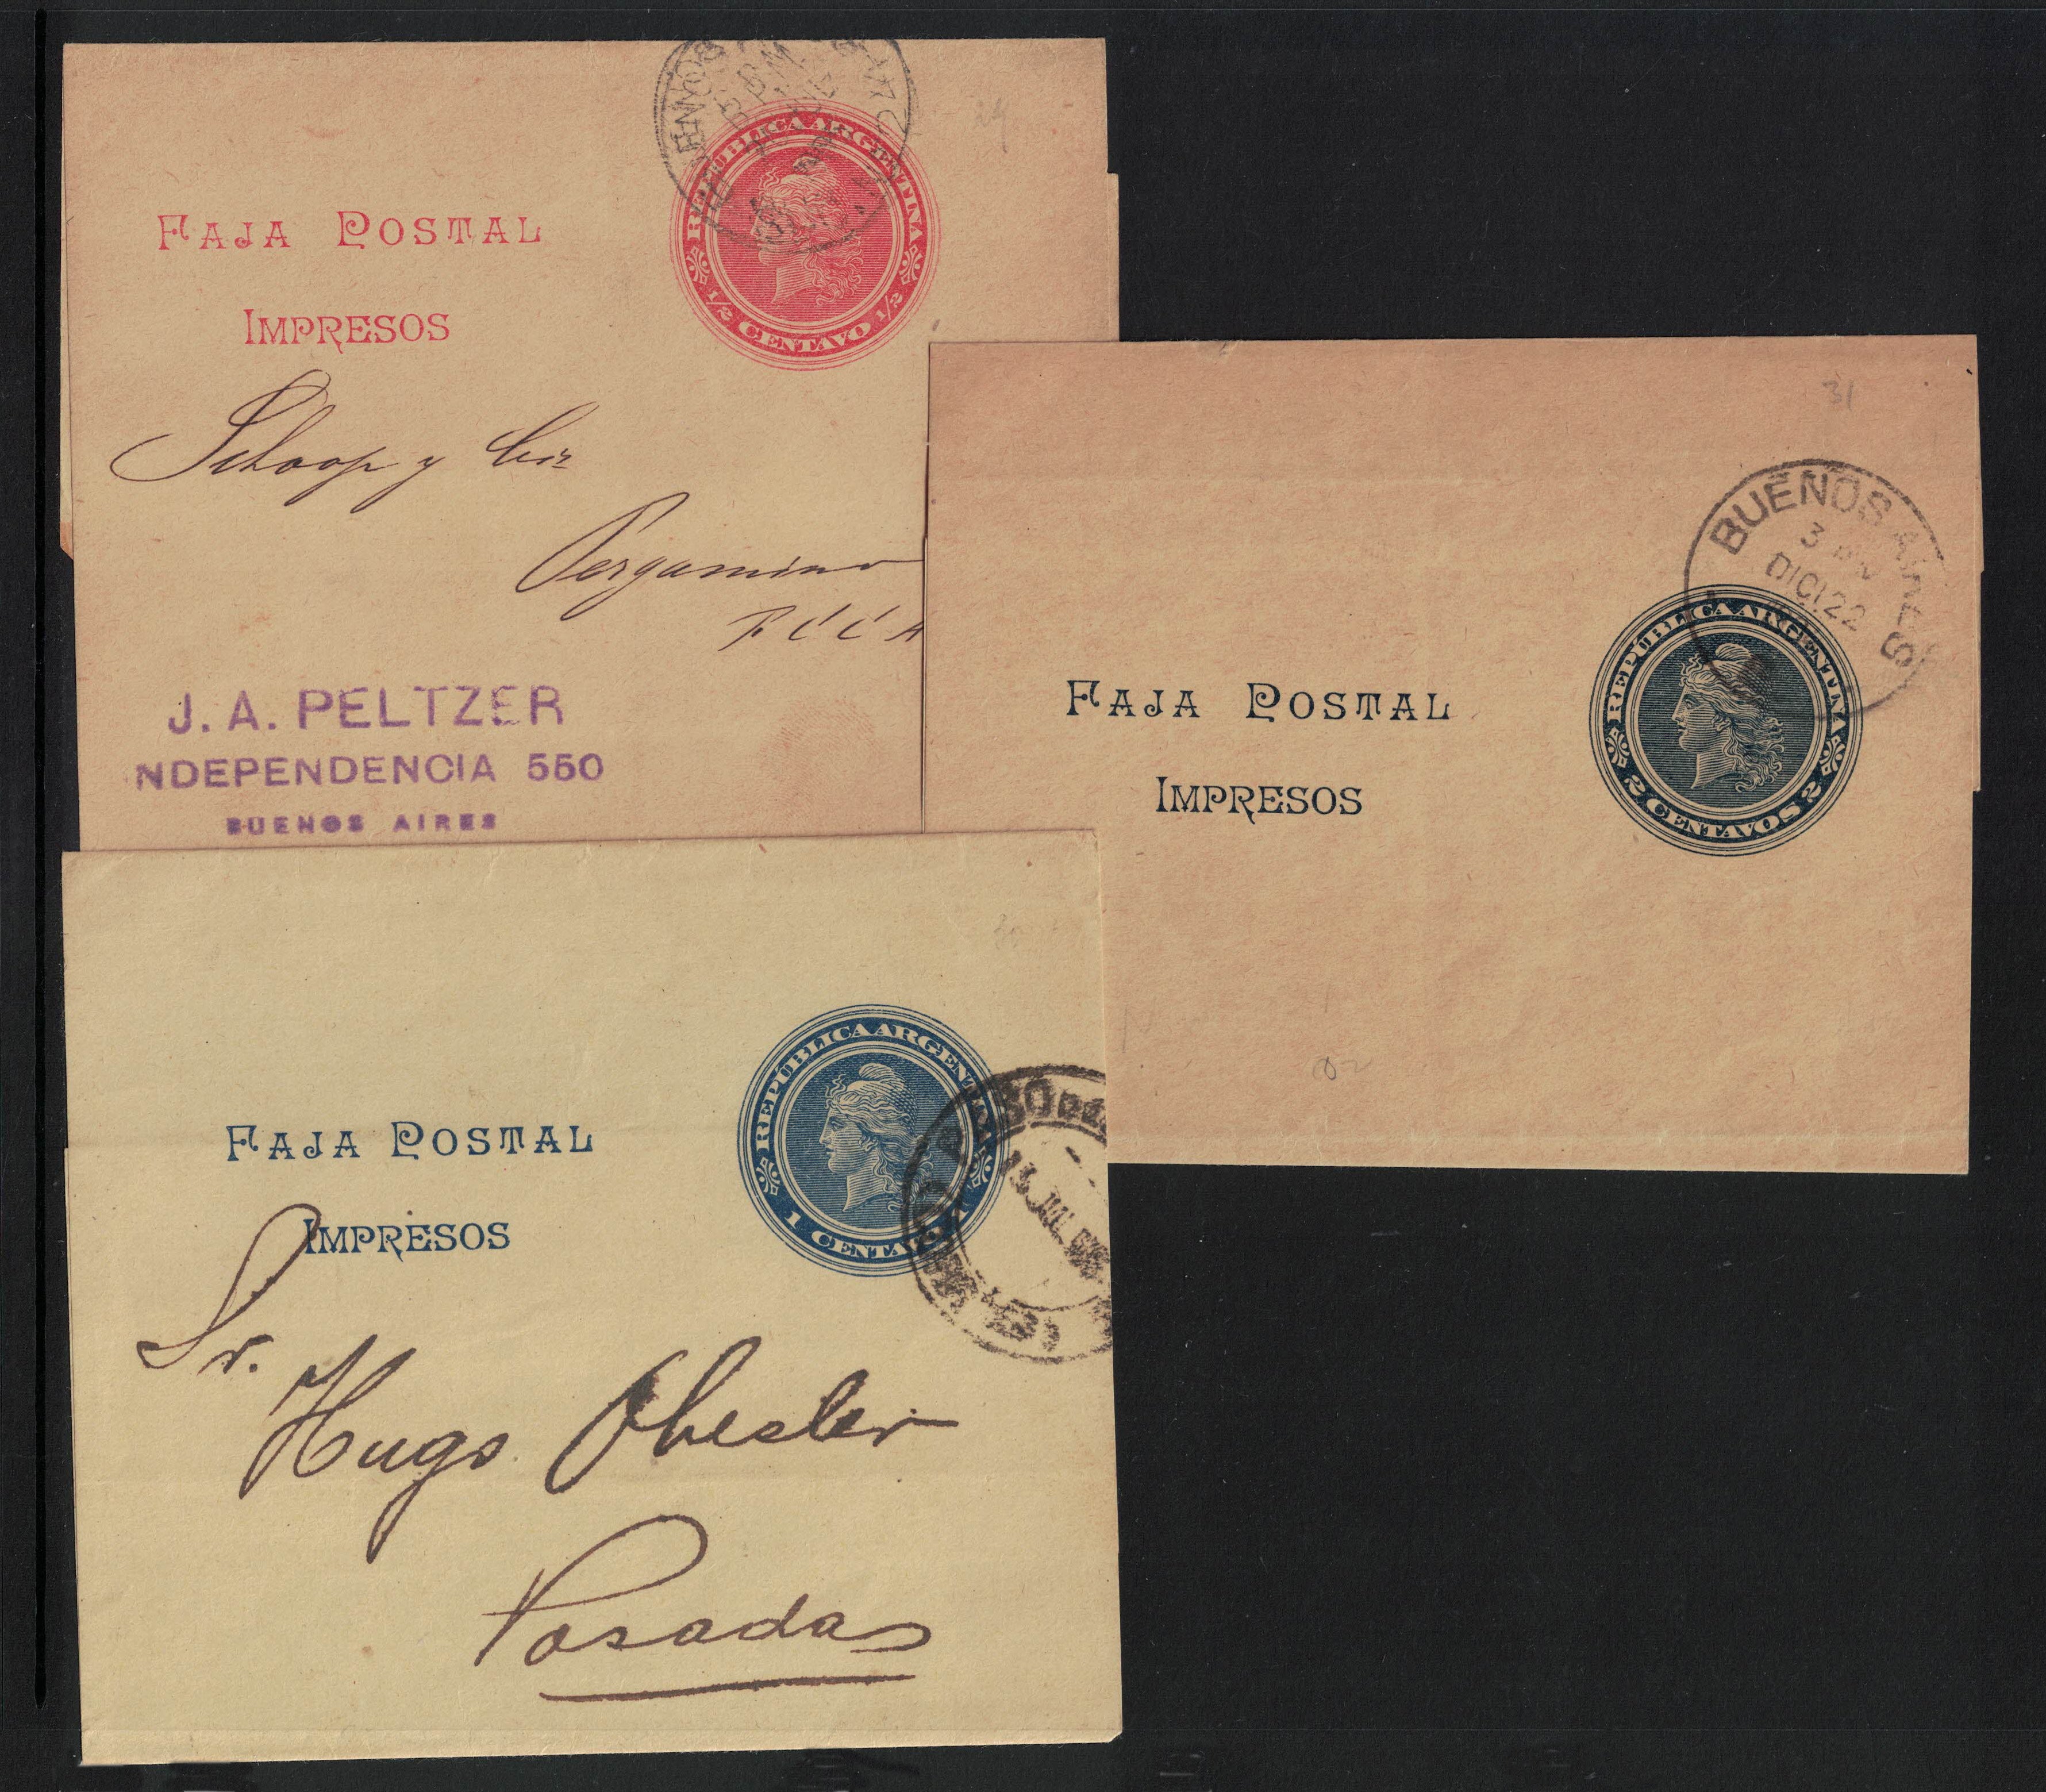 BUENOS
REPÚBLICA ARGENTINA
1/2 CENTAVO 1/2
29
FAJA POSTAL
IMPRESOS
Schoop y Cia
Pergamino
F C C A
J. A. PELTZER
NDEPENDENCIA 550
BUENOS AIRES
31
BUENOS AIRES
3
DIC 22
REPÚBLICA ARGENTINA
2 CENTAVOS 2
FAJA POSTAL
IMPRESOS
REPÚBLICA ARGENTINA
1 CENTAVO
13 JUL
FAJA POSTAL
IMPRESOS
Sr.
Hugo Obester
Posadas